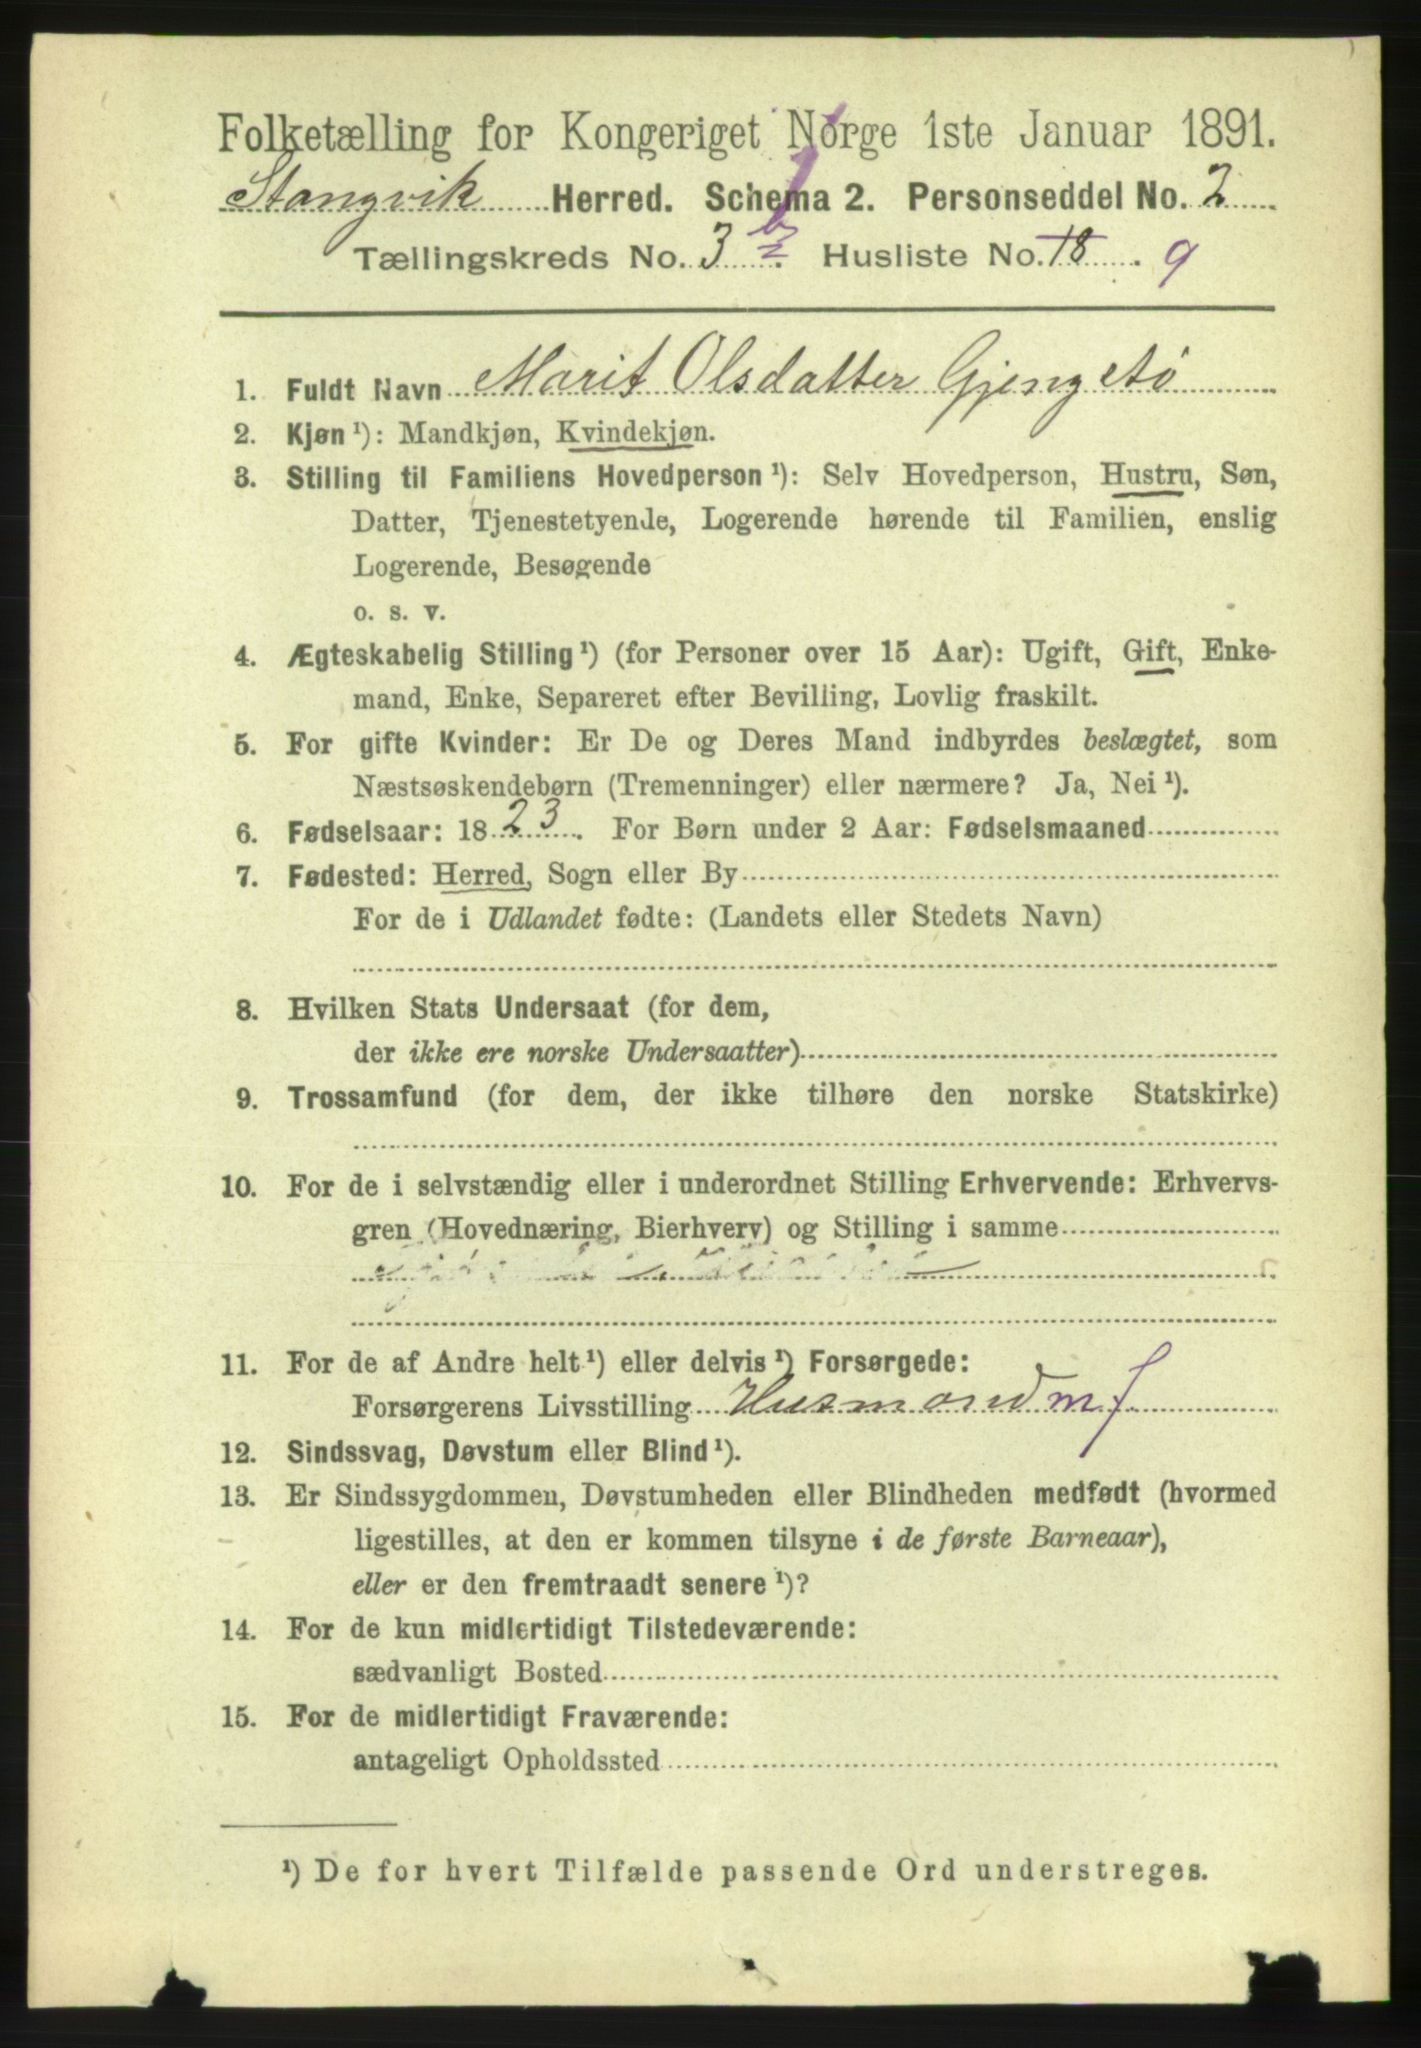 Folketælling for Kongeriget Norge 1ste Januar 1891.
Stangvik Herred. Schema 2. Personseddel No. 2
Tællingskreds No. 3 b. Husliste No. 18. 9
1. Fuldt Navn Marit Olsdatter Gjengstø
2. Kjøn ¹): Mandkjøn, Kvindekjøn.
3. Stilling til Familiens Hovedperson ¹): Selv Hovedperson, Hustru, Søn,
Datter, Tjenestetyende, Logerende hørende til Familien, enslig
Logerende, Besøgende
o. s. v.
4. Ægteskabelig Stilling ¹) (for Personer over 15 Aar): Ugift, Gift, Enke-
mand, Enke, Separeret efter Bevilling, Lovlig fraskilt.
5. For gifte Kvinder: Er De og Deres Mand indbyrdes beslægtet, som
Næstsøskendebørn (Tremenninger) eller nærmere? Ja, Nei ¹).
6. Fødselsaar: 1823. For Børn under 2 Aar: Fødselsmaaned
7. Fødested: Herred, Sogn eller By
For de i Udlandet fødte: (Landets eller Stedets Navn)
8. Hvilken Stats Undersaat (for dem,
der ikke ere norske Undersaatter)
9. Trossamfund (for dem, der ikke tilhøre den norske Statskirke)
10. For de i selvstændig eller i underordnet Stilling Erhvervende: Erhvervs-
gren (Hovednæring, Bierhverv) og Stilling i samme
11. For de af Andre helt ¹) eller delvis ¹) Forsørgede:
Forsørgerens Livsstilling Husmand m f
12. Sindssvag, Døvstum eller Blind ¹).
13. Er Sindssygdommen, Døvstumheden eller Blindheden medfødt (hvormed
ligestilles, at den er kommen tilsyne i de første Barneaar),
eller er den fremtraadt senere ¹)?
14. For de kun midlertidigt Tilstedeværende:
sædvanligt Bosted
15. For de midlertidigt Fraværende:
antageligt Opholdssted
¹) De for hvert Tilfælde passende Ord understreges.